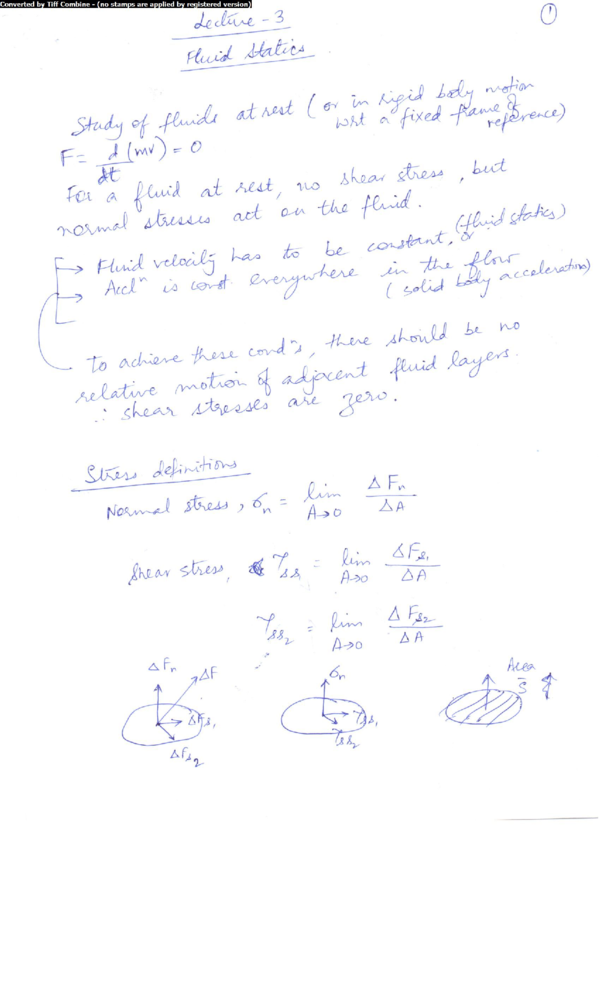 Converted by Tiff Combine - (no stamps are applied by registered version)
Lecture - 3
①
Fluid Statics
Study of fluids at rest (or in rigid body motion
wrt a fixed frame of
reference)
F = d/dt (mv) = 0
For a fluid at rest, no shear stress, but
normal stresses act on the fluid.
→ Fluid velocity has to be constant, or (fluid statics)
→ Accln is const everywhere in the flow
(solid body acceleration)
To achieve these cond's, there should be no
relative motion of adjacent fluid layers.
∴ shear stresses are zero.
Stress definitions
Normal stress, σn = lim A→0 ΔFn/ΔA
Shear stress, τss1 = lim A→0 ΔFs1/ΔA
τss2 = lim A→0 ΔFs2/ΔA
ΔFn ΔF ΔFs1 ΔFs2
σn τss1 τss2
Area S